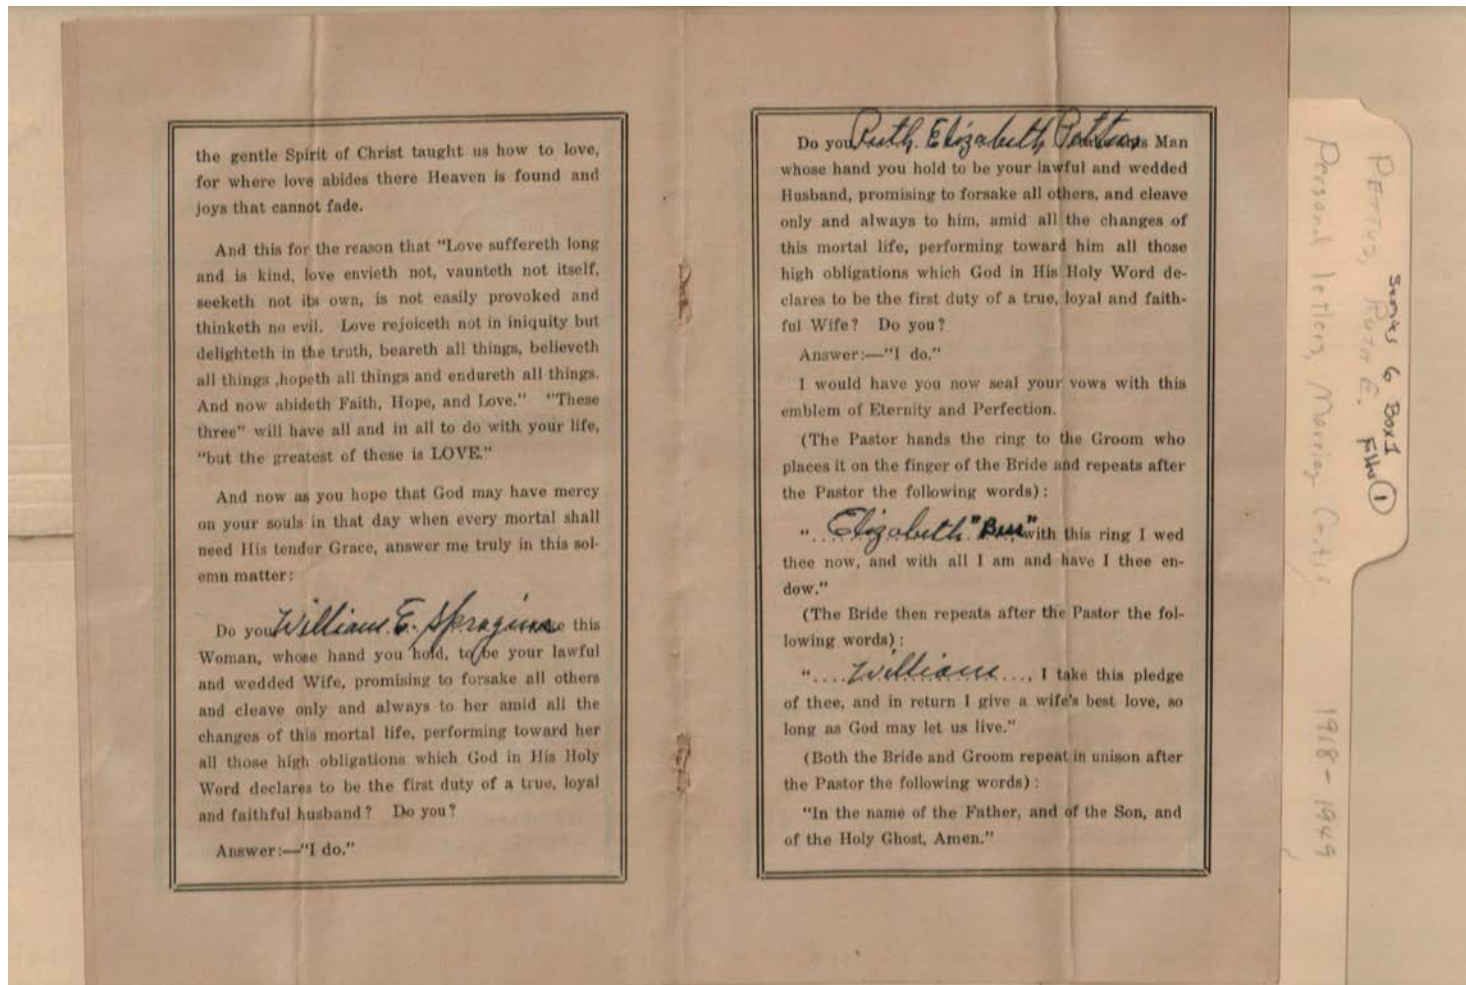 the gentle Spirit of Christ taught us how to love,
for where love abides there Heaven is found and
joys that cannot fade.
And this for the reason that "Love suffereth long
and is kind, love envieth not, vaunteth not itself,
seeketh not its own, is not easily provoked and
thinketh no evil. Love rejoiceth not in iniquity but
delighteth in the truth, beareth all things, believeth
all things ,hopeth all things and endureth all things.
And now abideth Faith, Hope, and Love." "These
three" will have all and in all to do with your life,
"but the greatest of these is LOVE."
And now as you hope that God may have mercy
on your souls in that day when every mortal shall
need His tender Grace, answer me truly in this sol-
emn matter:
Do you William E. Spragins this
Woman, whose hand you hold, to be your lawful
and wedded Wife, promising to forsake all others
and cleave only and always to her amid all the
changes of this mortal life, performing toward her
all those high obligations which God in His Holy
Word declares to be the first duty of a true, loyal
and faithful husband? Do you?
Answer:—"I do."
Do you Ruth Elizabeth Pettus Man
whose hand you hold to be your lawful and wedded
Husband, promising to forsake all others, and cleave
only and always to him, amid all the changes of
this mortal life, performing toward him all those
high obligations which God in His Holy Word de-
clares to be the first duty of a true, loyal and faith-
ful Wife? Do you?
Answer:—"I do."
I would have you now seal your vows with this
emblem of Eternity and Perfection.
(The Pastor hands the ring to the Groom who
places it on the finger of the Bride and repeats after
the Pastor the following words):
"...Elizabeth "Bess" with this ring I wed
thee now, and with all I am and have I thee en-
dow."
(The Bride then repeats after the Pastor the fol-
lowing words):
"....William..., I take this pledge
of thee, and in return I give a wife's best love, so
long as God may let us live."
(Both the Bride and Groom repeat in unison after
the Pastor the following words):
"In the name of the Father, and of the Son, and
of the Holy Ghost, Amen."
Series 6 Box 1
Folder 1
PETTUS, RUTH E.
Personal letters, Marriage 1918-1949